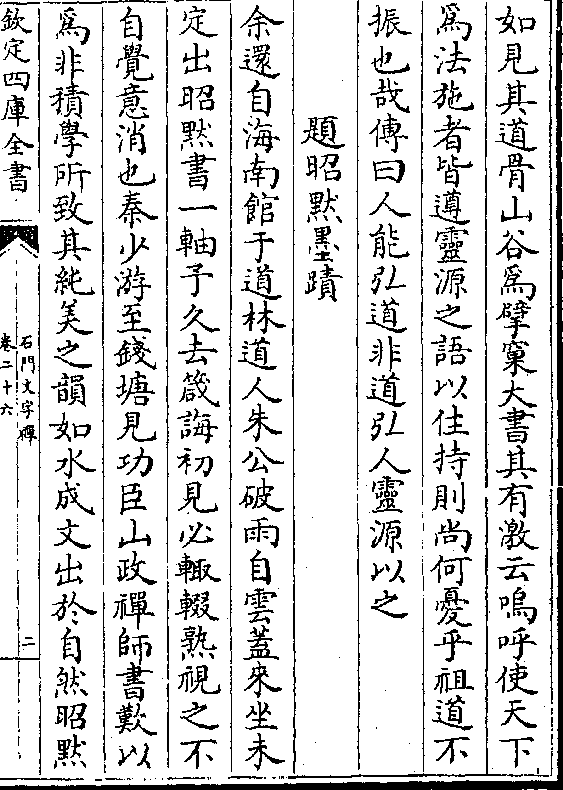 如見其道骨山谷為擘窠大書其有激云嗚呼使天下
為法施者皆遵靈源之語以住持則尚何憂乎祖道不
振也哉傳曰人能弘道非道弘人靈源以之
題昭默墨蹟
余還自海南館于道林道人朱公破雨自雲蓋來坐未
定出昭默書一軸予久去箴誨初見必輙輟熟視之不
自覺意消也秦少游至錢塘見功臣山政禪師書歎以
為非積學所致其純美之韻如水成文出於自然昭默
欽定四庫全書
石門文字禪
卷二十六
二